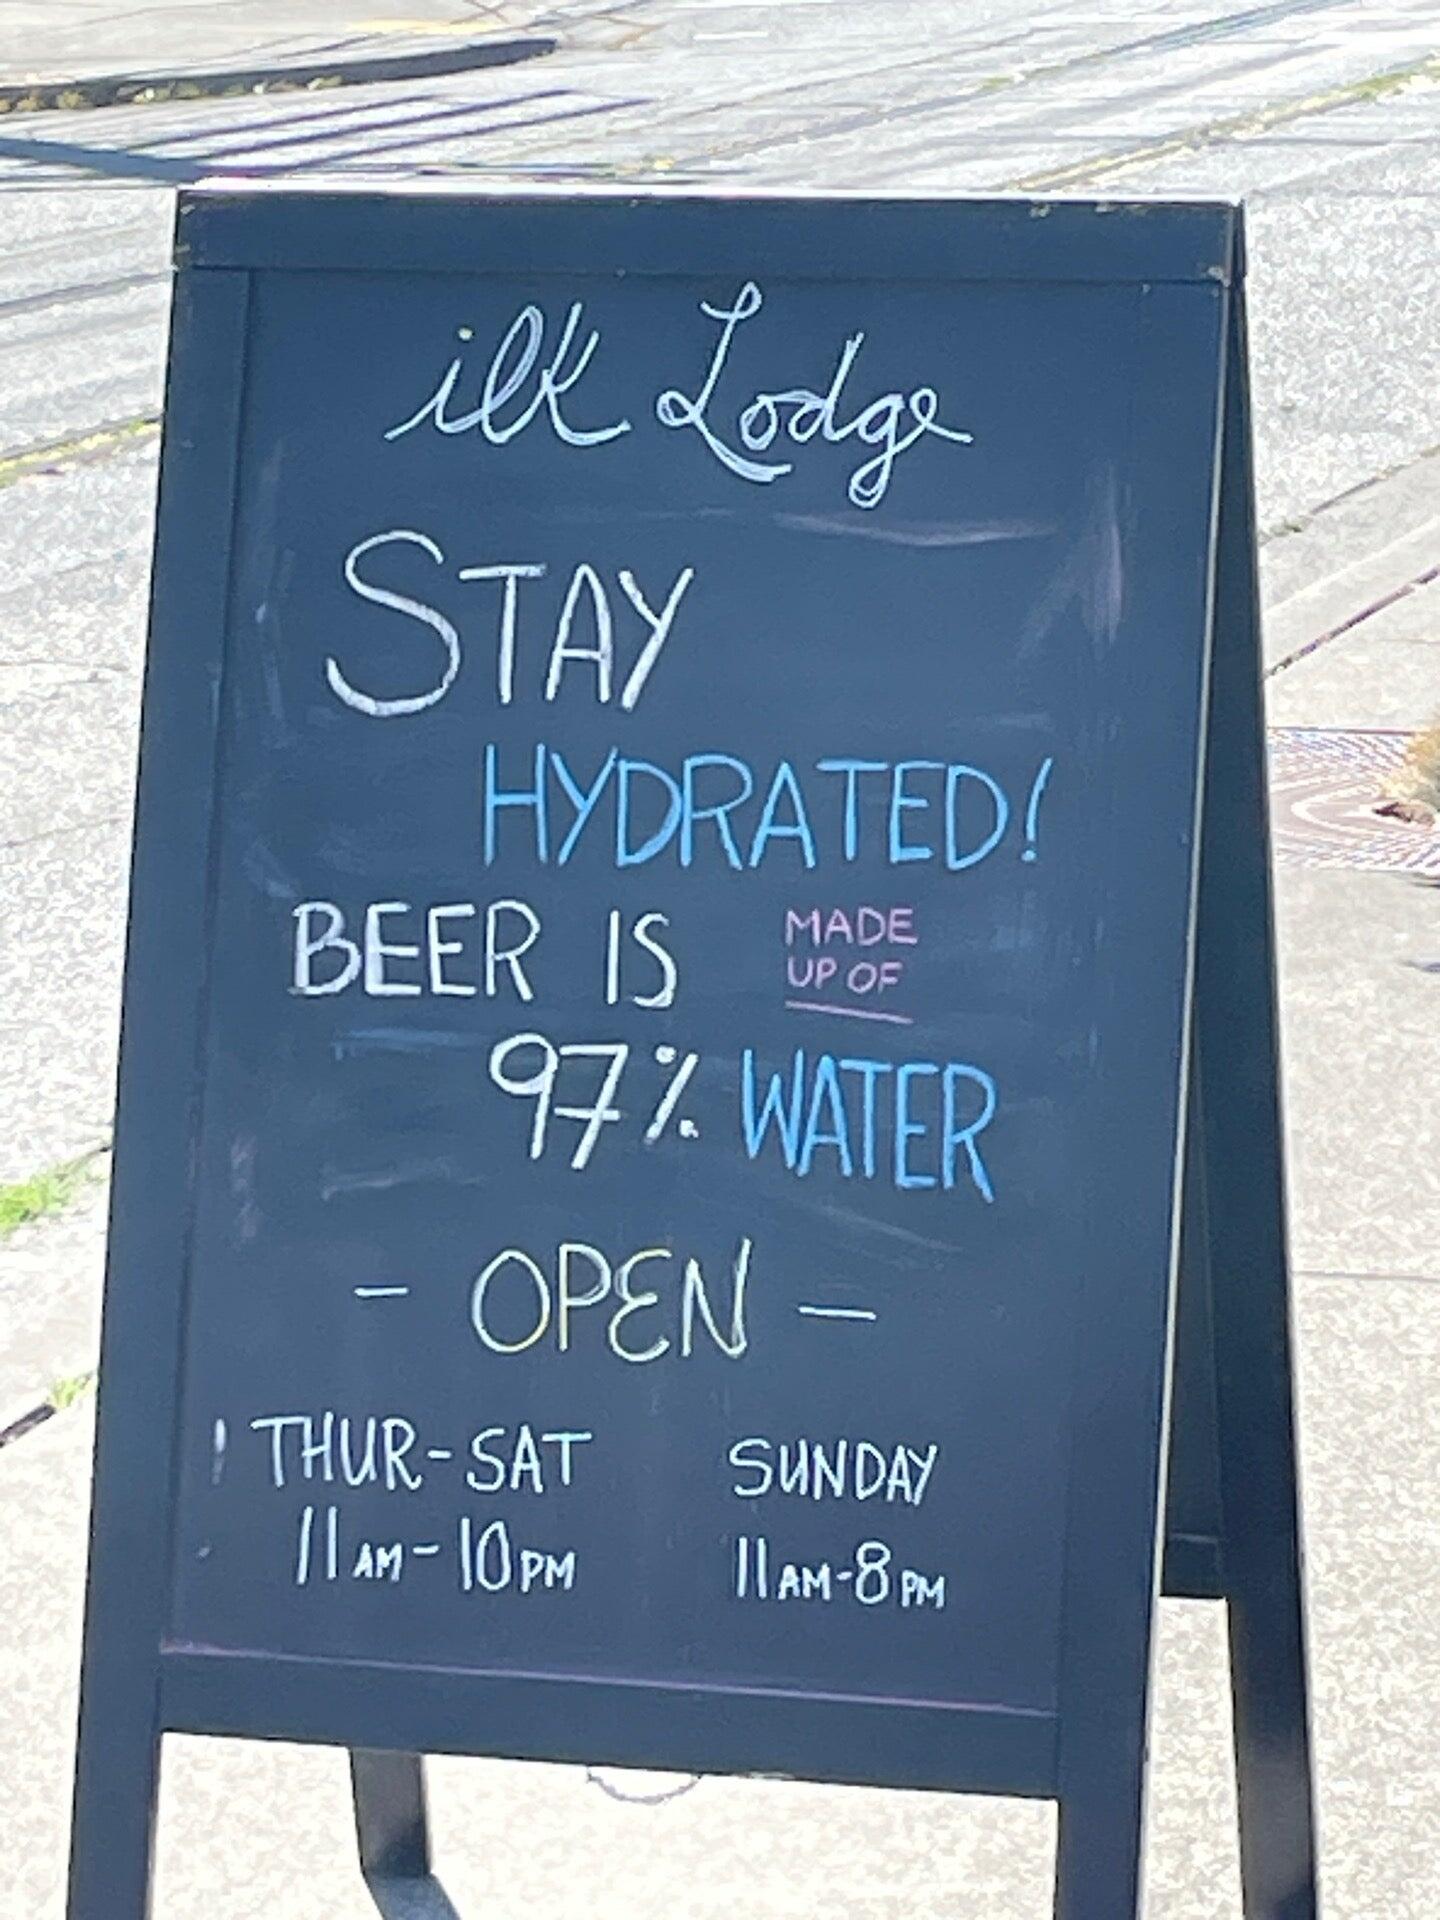 ilk Lodge
STAY
HYDRATED!
BEER IS MADE
UP OF
97% WATER
- OPEN -
THUR-SAT SUNDAY
11AM-10PM 11AM-8PM